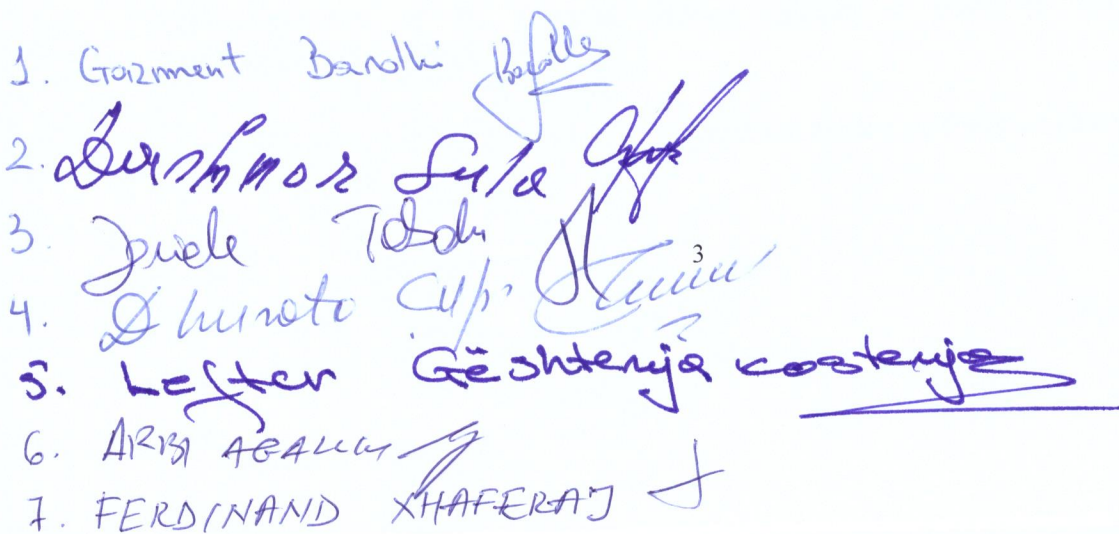 1. Gazment Bardhi
2. Dashnor Sula
3. Jorida Tabaku
3
4. Dhurata Çupi
5. Lefter Gështenja
6. ARBI AGALLIU
7. FERDINAND XHAFERAJ